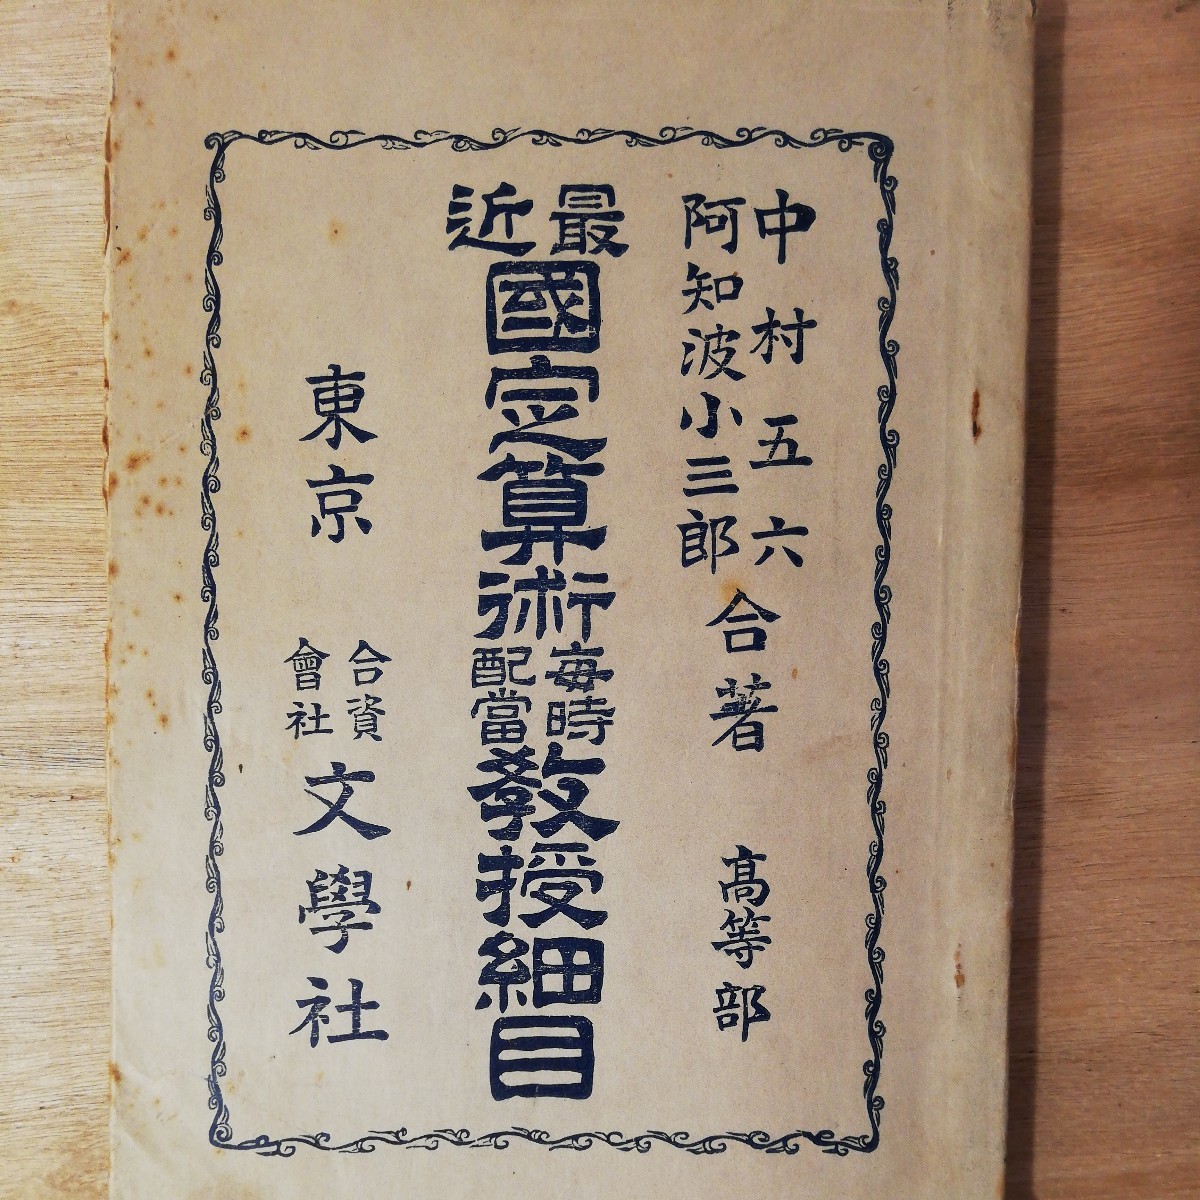 中村五六
阿知波小三郎
合著
高等部
最近
國定算術
毎時
配當
教授細目
東京
合資
會社
文學社